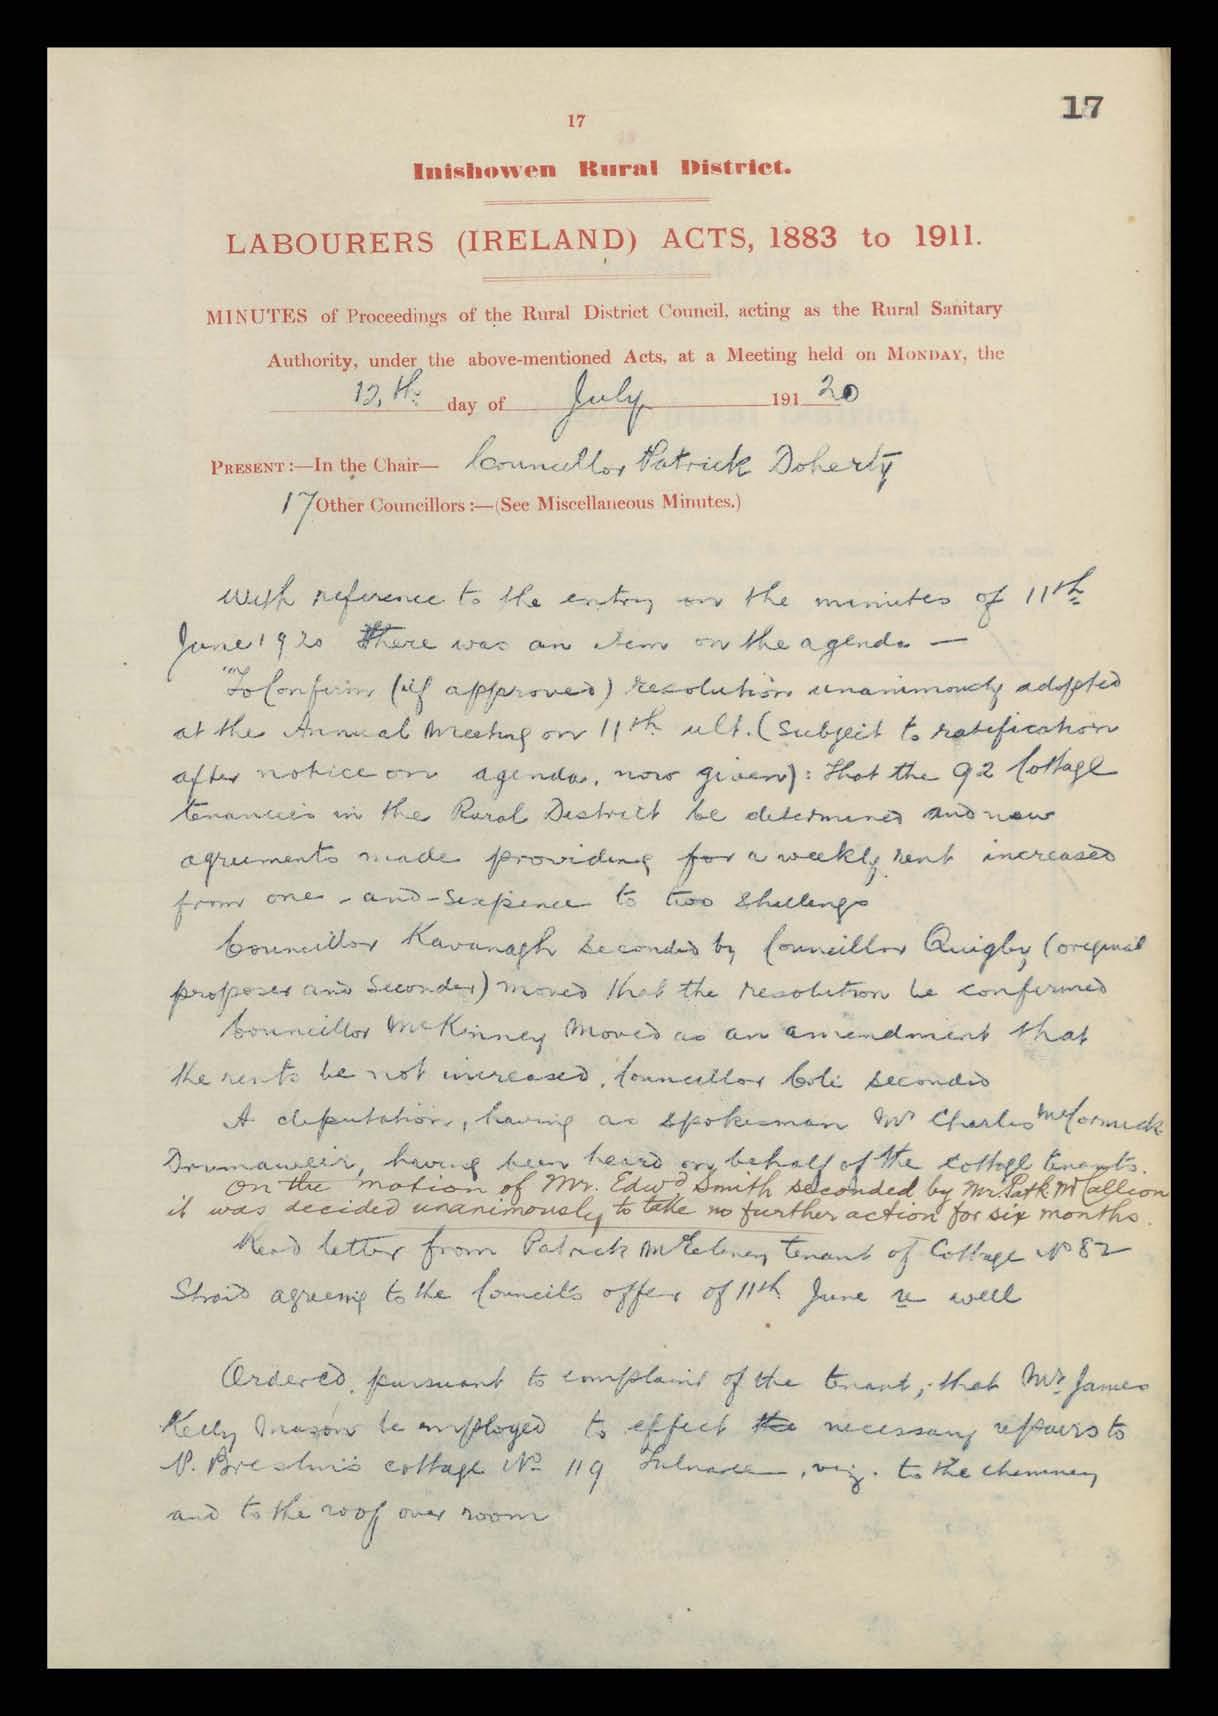 17
17
Inishowen Rural District.
LABOURERS (IRELAND) ACTS, 1883 to 1911.
MINUTES of Proceedings of the Rural District Council, acting as the Rural Sanitary
Authority, under the above-mentioned Acts, at a Meeting held on MONDAY, the
12th day of July 191 20
PRESENT:—In the Chair— Councillor Patrick Doherty
17 Other Councillors:—(See Miscellaneous Minutes.)
With reference to the entry on the minutes of 11th
June 1920 there was an item on the agenda —
"To Confirm (if approved) resolution unanimously adopted
at the Annual Meeting on 11th ult. (Subject to ratification
after notice on agenda, now given): that the 92 Cottage
tenancies in the Rural District be determined and new
agreements made providing for a weekly rent increased
from one-and-sixpence to two shillings
Councillor Kavanagh seconded by Councillor Quigley (original
proposer and Seconder) moved that the resolution be confirmed
Councillor McKinney Moved as an amendment that
the rents be not increased. Councillor Cole seconded
A deputation, having as spokesman Mr Charles McCormick
Drumaweir, having been heard on behalf of the cottage tenants.
On the motion of Mr. Edwd Smith seconded by Mr. Patk McCallion
it was decided unanimously to take no further action for six months.
Read letter from Patrick tenant of Cottage No 82
Straid agreeing to the Council's offer of 11th June re well
Ordered, pursuant to complaint of the tenant, that Mr James
Kelly Mason be employed to effect the necessary repairs to
Breslin's cottage No 119 , viz. to the chimney
and to the roof over room